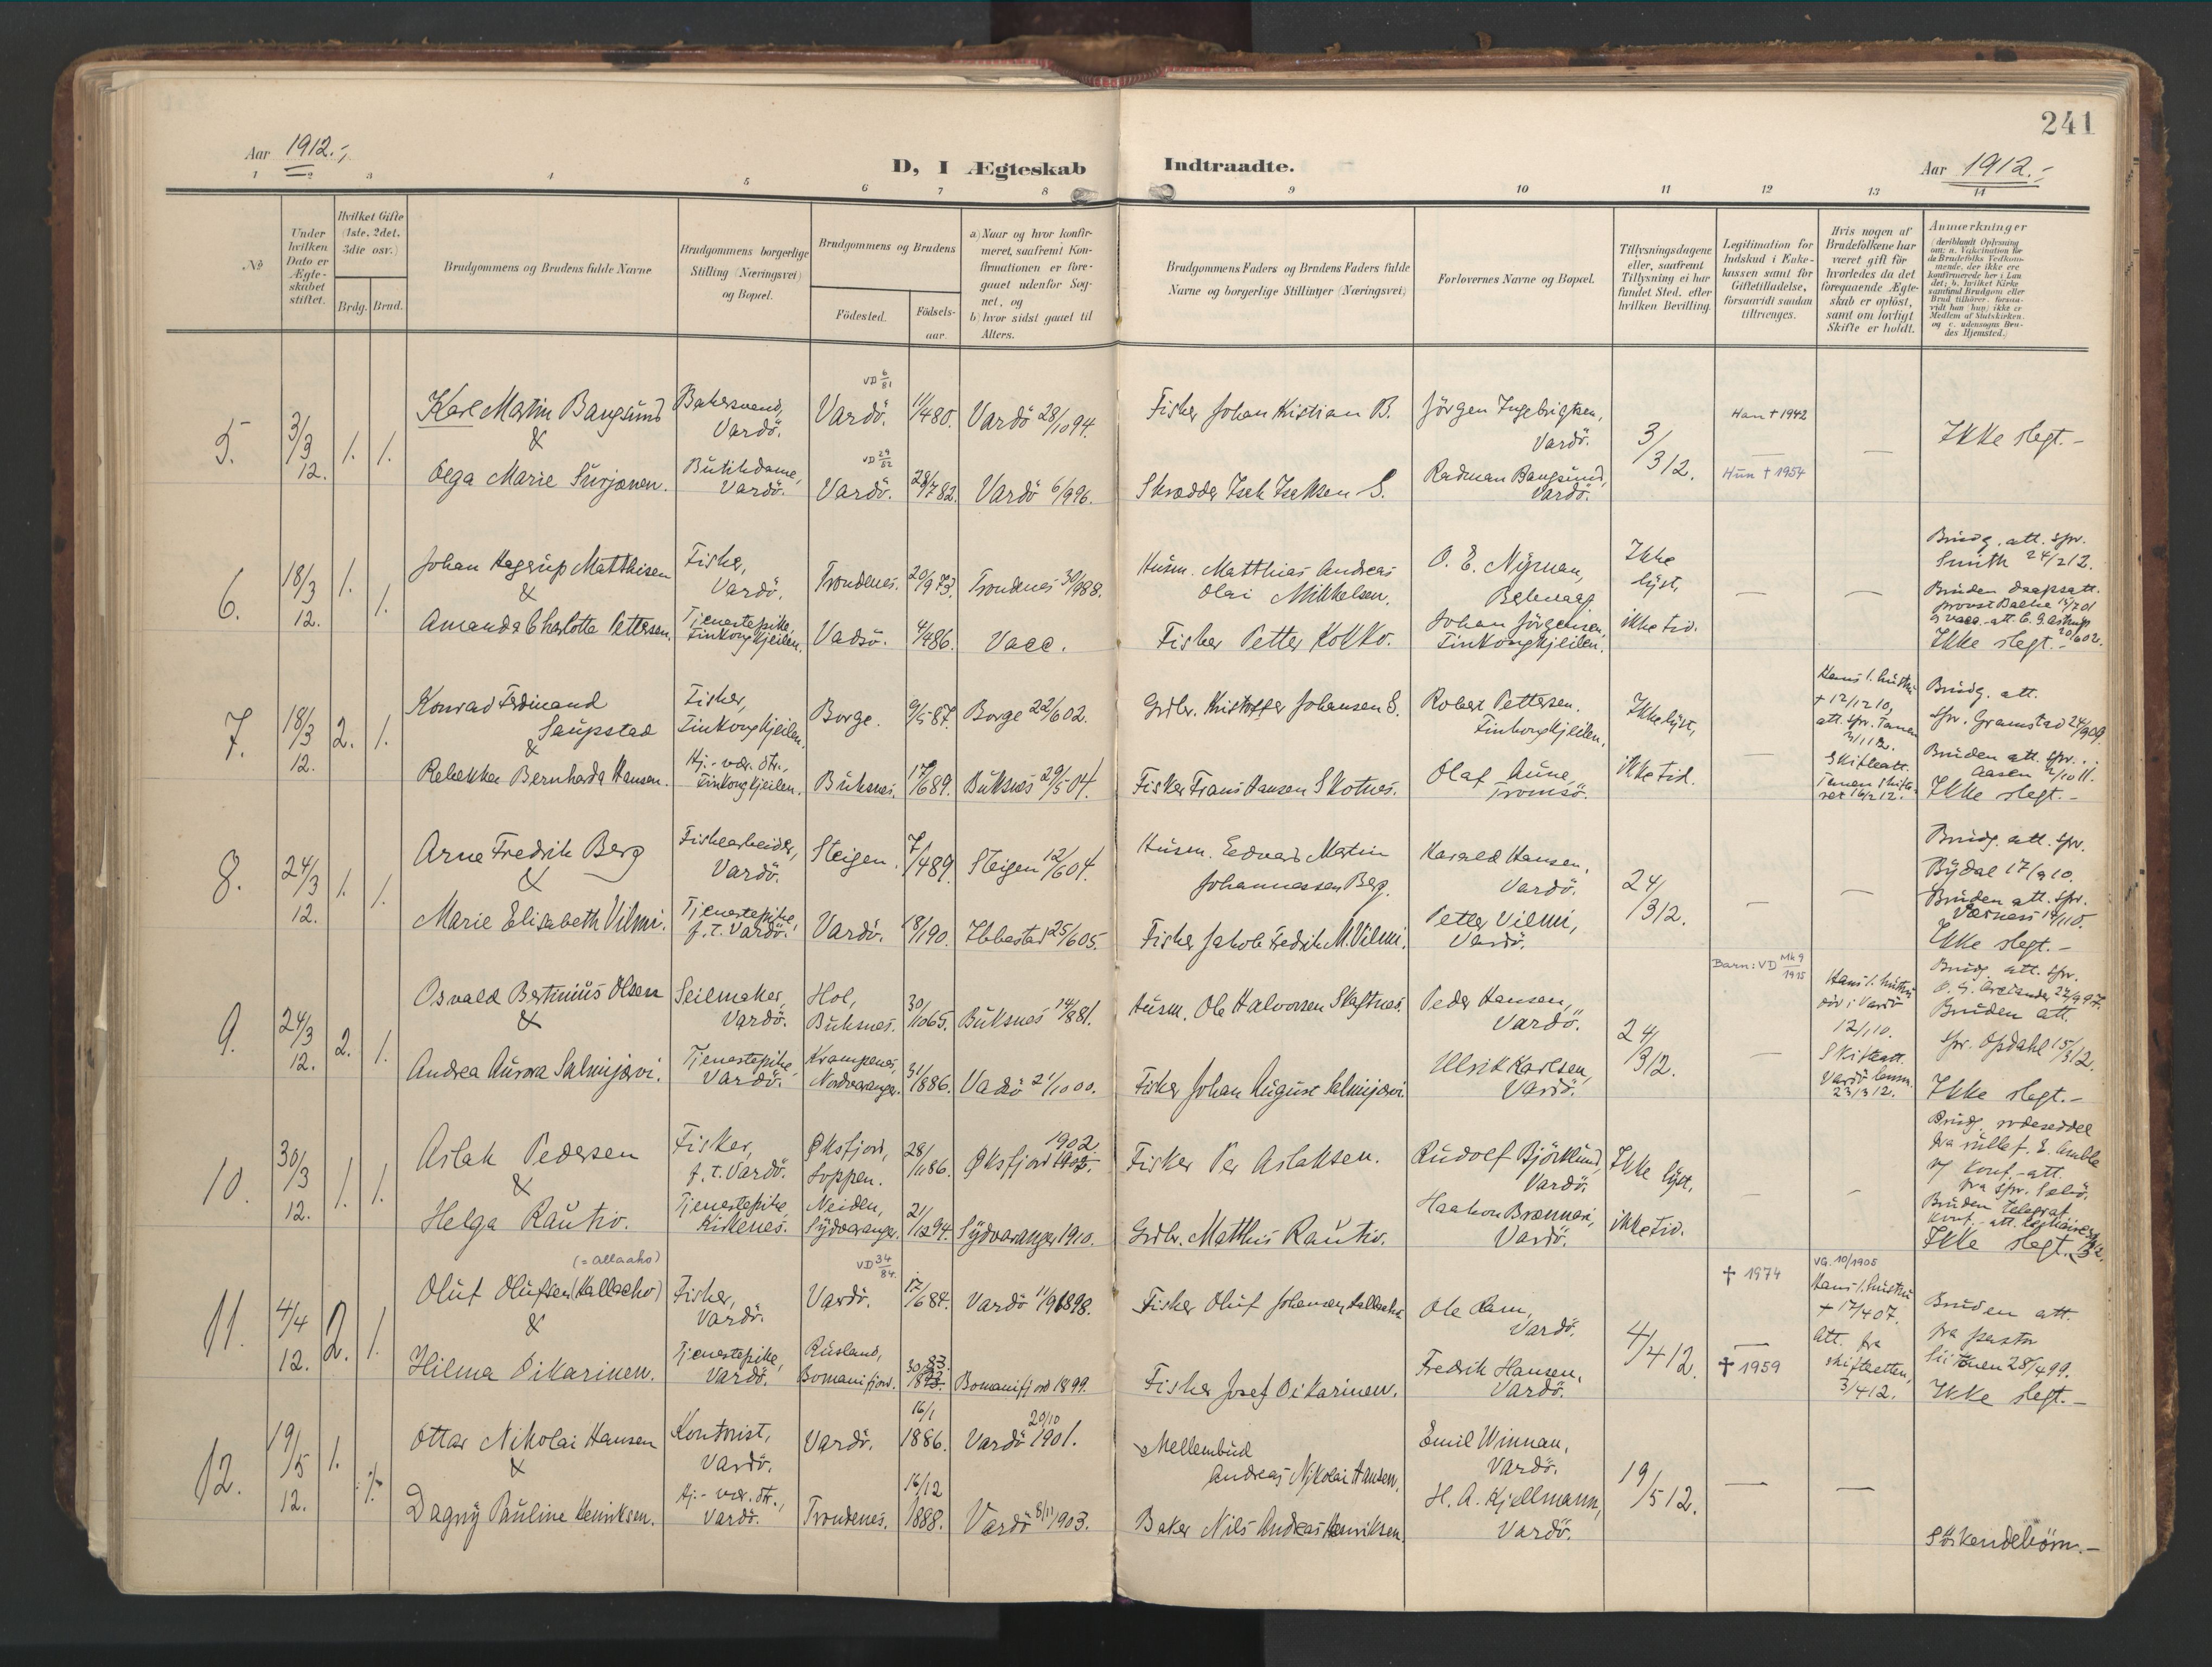 241
Aar 1912.-,
D, I Ægteskab Indtraadte.
Aar 1912.-,
1 2 3 4 5 6 7 8 9 10 11 12 13 14
No
Under hvilken Dato er Ægteskabet stiftet.
Hvilket Gifte (1ste, 2det, 3die osv.)
Brdg. Brud.
Brudgommens og Brudens fulde Navne
Brudgommens borgerlige Stilling (Næringsvei) og Bopæl.
Brudgommens og Brudens
Fødested. Fødselsaar.
a) Naar og hvor konfirmeret, saafremt Konfirmationen er foregaaet udenfor Sognet, og
b) hvor sidst gaaet til Alters.
Brudgommens Faders og Brudens Faders fulde Navne og borgerlige Stillinger (Næringsvei)
Forlovernes Navne og Bopæl.
Tillysningsdagene eller, saafremt Tillysning ei har fundet Sted, efter hvilken Bevilling.
Legitimation for Indskud i Enkekassen samt for Giftetilladelse, forsaavidt saadan tiltrænges.
Hvis nogen af Brudefolkene har været gift før hvorledes da det foregaaende Ægteskab er opløst, samt om lovligt Skifte er holdt.
Anmærkninger
(deriblandt Oplysning om: a. Vakcination for de Brudefolks Vedkommende, der ikke ere konfirmerede her i Landet; b. hvilket Kirkesamfund Brudgom eller Brud tilhører, forsaavidt han (hun) ikke er Medlem af Statskirken, og c. udensogns Brudes Hjemsted.)
5. 3/3 12. 1. 1.
Karl Martin Bangsund
&
Olga Marie Surjonen.
Bakersvend, Vardö.
Butikdame, Vardö.
VD 6/81
Vardö. 11/4 80. Vardö 28/10 94.
VD 29/82
Vardö. 28/7 82. Vardö 6/9 96.
Fisker Johan Kristian B.
Skrædder Isak Isaksen S.
Jörgen Ingebrigtsen, Vardö.
Radman Bangsund, Vardö.
3/3 12.
Han † 1942
Hun † 1954
Ikke slegt.-
6. 18/3 12. 1. 1.
Johan Hagerup Matthisen
&
Amanda Charlotte Pettersen.
Fisker, Vardö.
Tjenestepike, Finkongkjeilen.
Trondenes. 20/9 73. Trondenes 30/9 88.
Vadsö. 4/4 86. Vacc.
Husm. Matthias Andreas
Olai Mikkelsen.
Fisker Petter Kokko.
O. E. Nyman,
Johan Jörgensen, Finkongkjeilen.
Ikke lyst, ikke tid.
Brudg. att. spr.
Smith 24/2 12.
Bruden daapsatt.
Ikke slegt.-
7. 18/3 12. 2. 1.
Konrad Ferdinand
Saupstad
&
Rebekka Bernharda Hansen.
Fisker, Finkongkjeilen.
Hj.- vær. dtr., Finkongkjeilen.
Borge. 9/5 87. Borge 22/6 02.
Buksnes. 17/6 89. Buksnes 29/5 04.
Grdbr. Kristoffer Johansen S.
Fisker Frans Hansen Skotnes.
Robert Pettersen. Finkongkjeilen.
Olaf Aune, Tromsö.
Ikke lyst, ikke tid.
Hans 1. hustru
† 12/12 10,
att. spr. Tanen
3/1 12.
Skifteatt.
Brudg. att.
spr. Gramstad 24/9 09.
Bruden att. spr.
Aasen 2/10 11.
Ikke slegt.-
8. 24/3 12. 1. 1.
Arne Fredrik Berg
&
Marie Elisabeth Vilmi.
Fiskearbeider, Vardö.
Tjenestepike, f. t. Vardö.
Steigen. 7/4 89. Steigen 12/6 04.
Vardö. 18/1 90. Ibbestad 25/6 05.
Husm. Edvard Martin
Johannessen Berg.
Fisker Jakob Fredrik M. Vilmi.
Harald Hansen, Vardö.
Petter Vilmi, Vardö.
24/3 12.
Brudg. att. spr.
Bydal 17/9 10.
Bruden att. spr.
Ikke slegt.-
9. 24/3 12. 2. 1.
Osvald Bertinius Olsen
&
Andrea Aurora Salmijærvi.
Seilmaker, Vardö.
Tjenestepike, Vardö.
Hol, Buksnes. 30/10 65. Buksnes 14/8 81.
Krampenes, Nordvaranger. 31/1 86. Vadsö 21/10 00.
Husm. Ole Halvorsen Skaftnes.
Fisker Johan August Salmijærvi.
Peder Hansen, Vardö.
Ulrik Karlsen, Vardö.
24/3 12.
Barn: VD Mk 9/1915
Hans 1. hustru
död i Vardö
12/1 10.
Skifteatt.
Vardö lensm.
23/3 12.
Brudg. att. spr.
Bruden att.
spr. Opdahl 15/3 12.
Ikke slegt.-
10. 30/3 12. 1. 1.
Aslak Pedersen
&
Helga Rautio.
Fisker, f. t. Vardö.
Tjenestepike, Kirkenes.
Øksfjord, Loppen. 28/11 86. Øksfjord 1902.
Neiden, Sydvaranger. 21/12 94. Sydvaranger 1910.
Fisker Per Aslaksen.
Grdbr. Matthis Rautio.
Rudolf Björklund, Vardö.
Haakon Brannari, Vardö.
Ikke lyst, ikke tid.
Brudg. rodeseddel
konf.-att.
Bruden telegraf.
Ikke slegt.
11. 4/4 12. 2. 1.
(= allaaho)
Oluf Olufsen (Kallaaho)
&
Hilma Oikarinen.
Fisker, Vardö.
Tjenestepike, Vardö.
VD 34/84.
Vardö. 17/6 84. Vardö 11/9 1898.
Rusland, Bomanifjord. 30/ 83. Bomanifjord 1899.
Fisker Oluf Johansen Kallaaho
Fisker Josef Oikarinen.
Ole Ram, Vardö.
Fredrik Hansen, Vardö.
4/4 12.
† 1974
† 1959
VG. 10/1905
Hans 1. hustru
† 17/4 07.
Att. fra
skifteretten,
3/4 12.
Bruden att.
fra pastor
28/4 99.
Ikke slegt.-
12. 19/5 12. 1. 1.
Ottar Nikolai Hansen
&
Dagny Pauline Henriksen.
Kontorist, Vardö.
Hj.- vær. dtr., Vardö.
Vardö. 16/1 1886. Vardö 20/10 1901.
Trondenes. 16/12 1888. Vardö 8/11 1903.
Mellembud
Andreas Nikolai Hansen.
Baker Nils Andreas Henriksen.
Emil Winnan, Vardö.
H. A. Kjellmann, Vardö.
19/5 12.
Söskendebörn.-